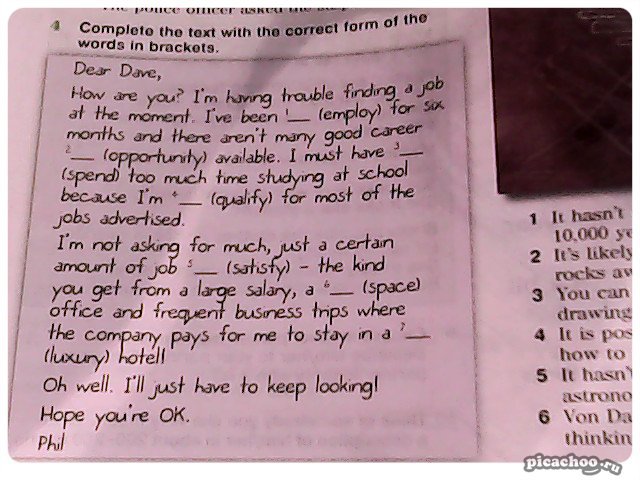 The police officer asked the
4 Complete the text with the correct form of the
words in brackets.
Dear Dave,
How are you? I'm having trouble finding a job
at the moment. I've been 1__ (employ) for six
months and there aren't many good career
2__ (opportunity) available. I must have 3__
(spend) too much time studying at school
because I'm 4__ (qualify) for most of the
jobs advertised.
I'm not asking for much, just a certain
amount of job 5__ (satisfy) – the kind
you get from a large salary, a 6__ (space)
office and frequent business trips where
the company pays for me to stay in a 7__
(luxury) hotel!
Oh well. I'll just have to keep looking!
Hope you're OK.
Phil
1 It hasn't
10,000
2 It's likely
rocks
3 You can
drawing
4 It is
how to
5 It hasn'
6 Von
picachoo.ru